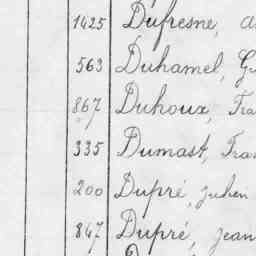 1425 Dufresne,
563 Duhamel,
867 Duhoux,
335 Dumast,
200 Dupré, Julien
847 Dupré, Jean